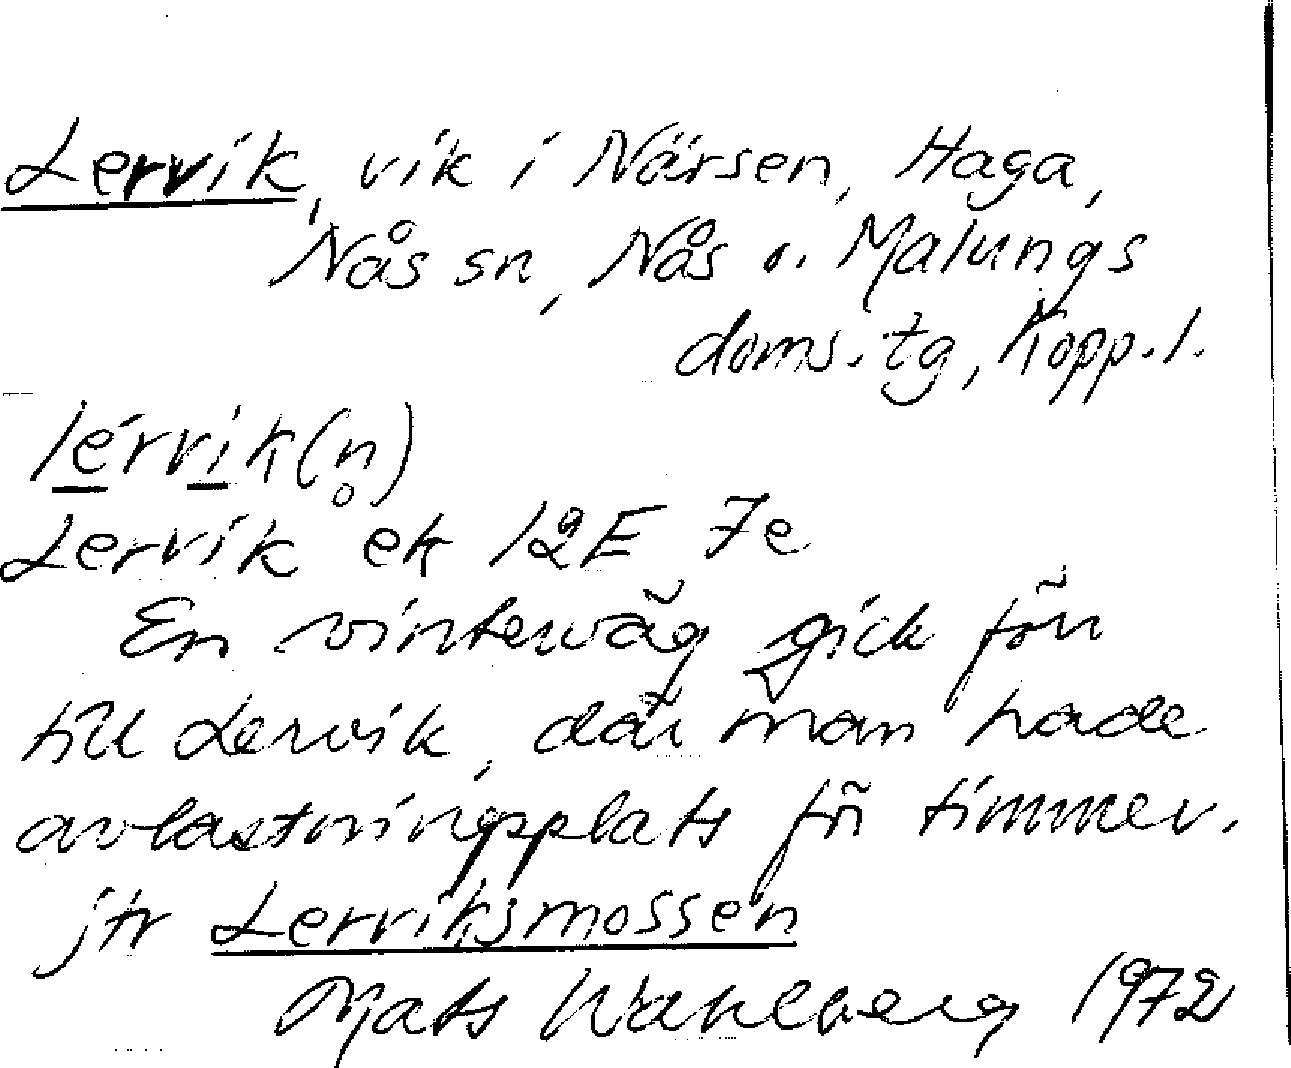 Lervik, vik i Närsen, Haga,
Nås sn, Nås o. Malungs
doms.tg, Kopp.l.
lérvik(n̥)
Lervik ek 12E 7e
En vinterväg gick förr
till Lervik, där man hade
avlastningsplats för timmer.
jfr Lerviksmossen
Mats Wahlberg 1972